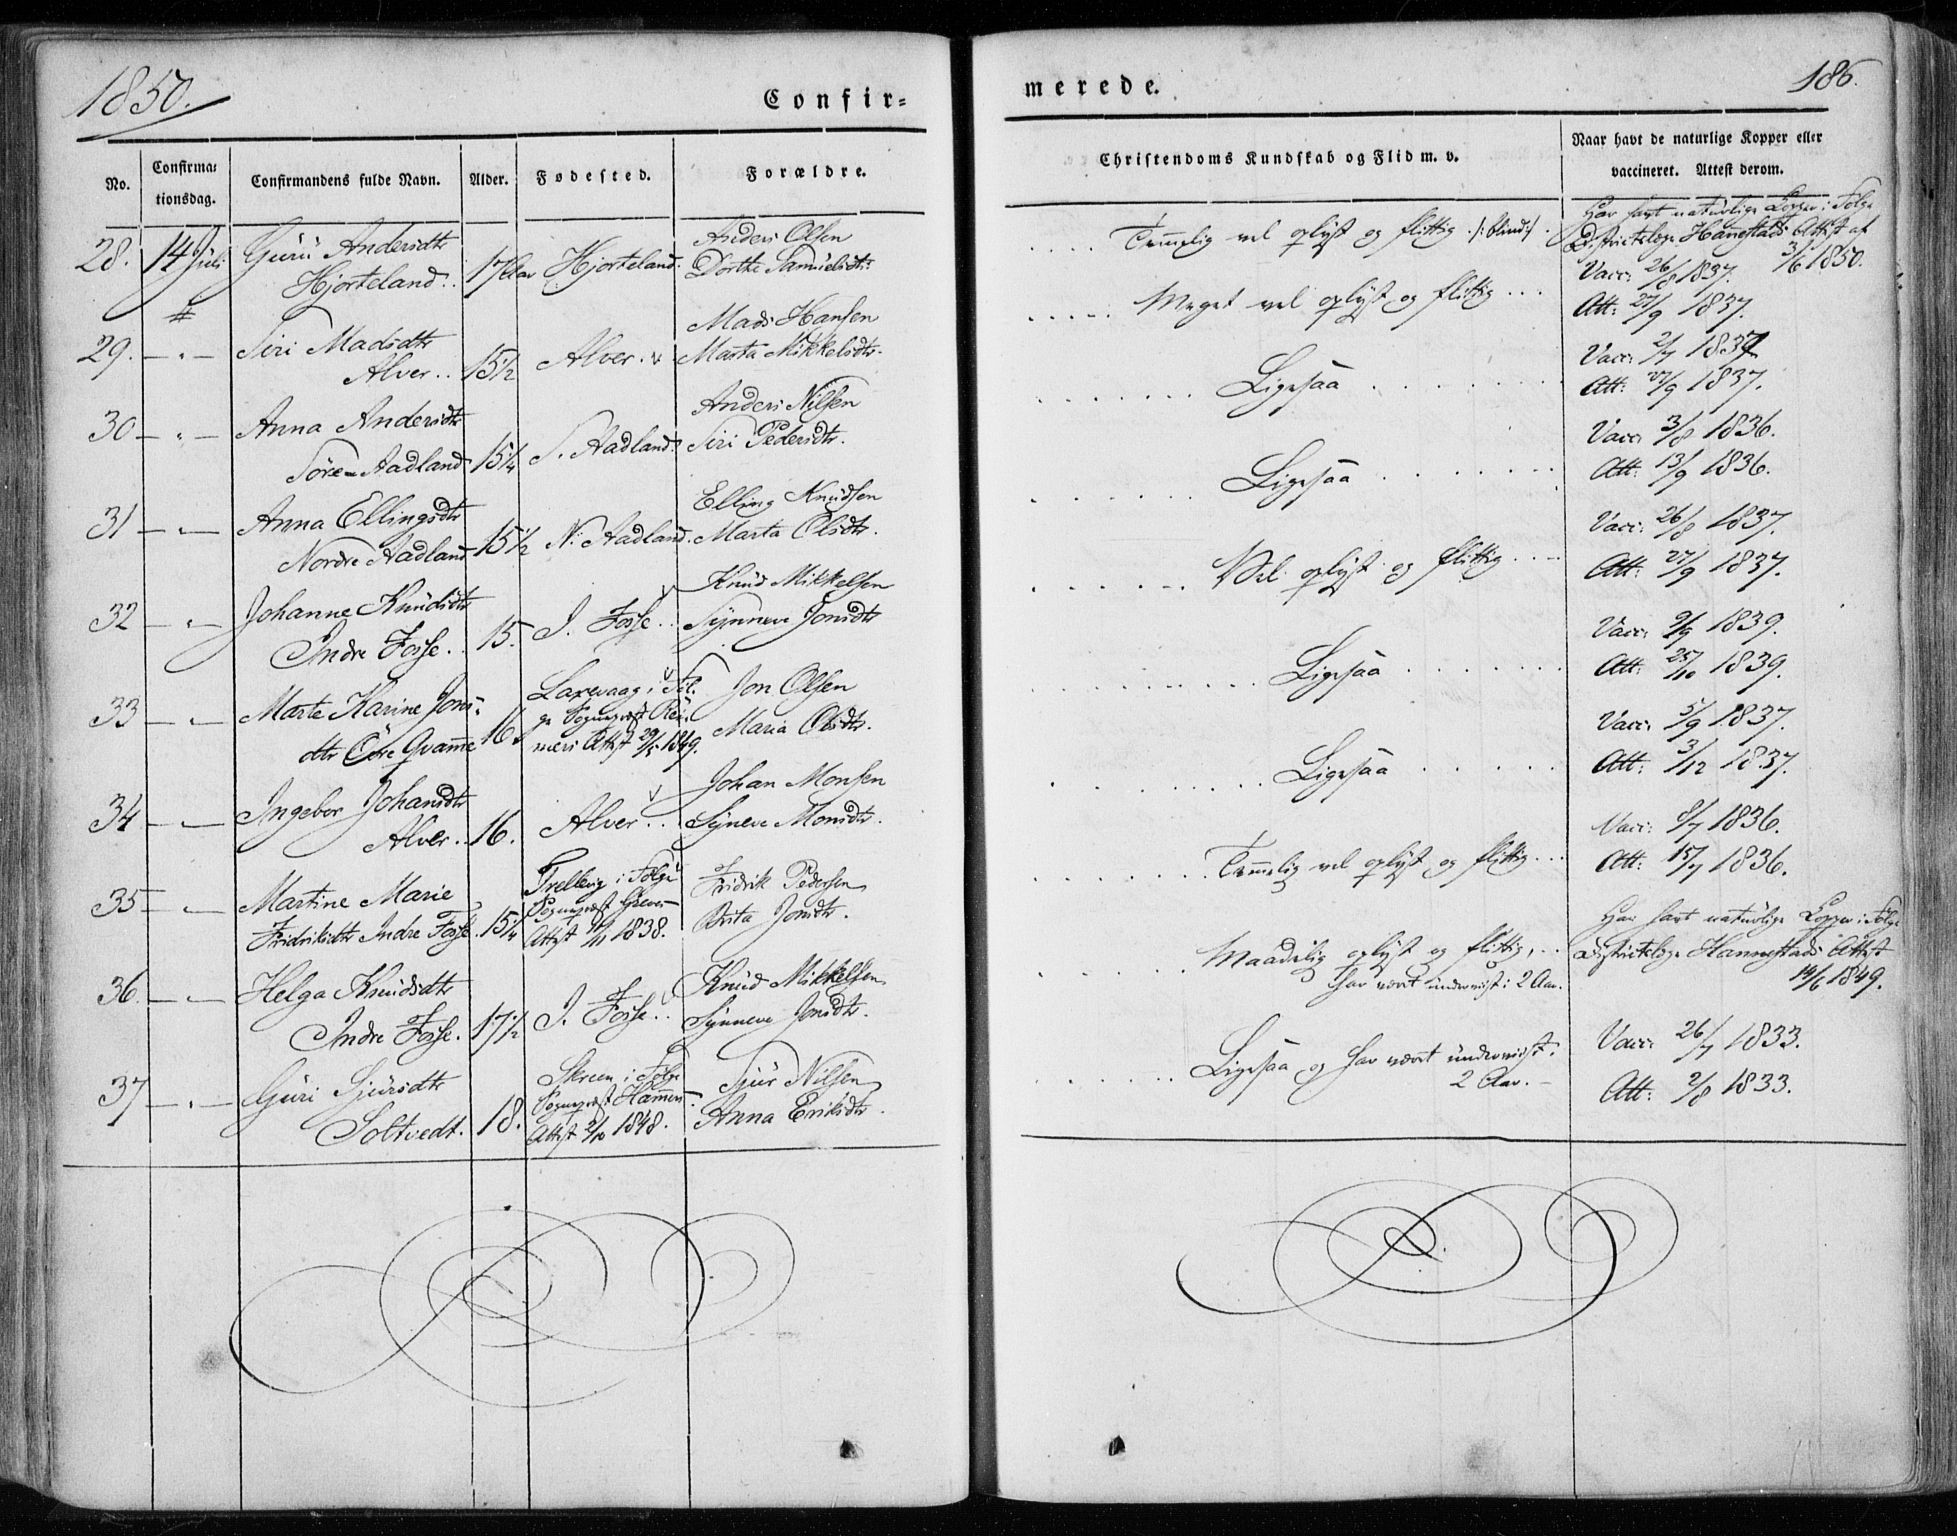 1850.
Confir=
No.
Confirma=
tionsdag.
Confirmandens fulde Navn.
Alder.
Fødested.
Forældre.
28. 14 Juli Guru Andersdtr
Hjorteland.. 17 Aar Hjorteland.
Anders Olsen
Dorthe Samuelsdtr.
29. — " — Siri Madsdtr
Alver.. 15 1/2 Alver..
Mads Hansen
Marta Mikkelsdtr.
30 — " — Anna Andersdtr
Søre Aadland 15 1/4 S. Aadland.
Anders Nilsen
Siri Pedersdtr.
31 — " — Anna Ellingsdtr
Nordre Aadland 15 1/2 N. Aadland.
Elling Knudsen
Marta Olsdtr.
32 — " — Johanne Knudsdtr
Indre Fosse.. 15. I. Fosse..
Knud Mikkelsen
Synneve Jonsdtr
33 — " — Marte Karine Jons=
dtr Øvre Qvamme 16.
Laxevaag i Føl-
ge Sognepræst Reu-
mers Attest 29/5 1849.
Jon Olsen
Maria Olsdtr.
34 — " — Ingebor Johansdtr
Alver.. 16. Alver..
Johan Monsen
Synneve Monsdtr.
35 — " — Martine Marie
Fridriksdtr Indre Fosse. 15 1/4
Trellevig i Følge
Sognepræst Greves
Attest 1838.
Fridrik Pedersen
Brita Jonsdtr.
36. — " — Helga Knudsdtr
Indre Fosse. 17 1/2 I. Fosse..
Knud Mikkelsen
Synneve Jonsdtr.
37 — " — Guri Sjursdtr
Soltvedt. 18.
Skreen i Følge
Sognepræst Hammers
Attest 2/10 1848.
Sjur Nilsen
Anna Eriksdtr.
merede.
186.
Christendoms Kundskab og Flid m. v.
Naar havt de naturlige Kopper eller
vaccineret. Attest derom.
.... Temmelig vel oplyst og flittig /:blind:/.
Har havt naturlige Kopper i Følge
Districtslæge Hannestads Attest af
3/6 1850.
..... Meget vel oplyst og flittig ...
Vacc: 26/8 1837.
Att: 27/9 1837.
....... Ligesaa .......
Vacc: 2/7 1837
Att: 27/9 1837.
...... Ligesaa .......
Vacc: 3/8 1836.
Att: 13/9 1836.
...... Vel oplyst og flittig ...
Vacc: 26/8 1837.
Att: 27/9 1837.
......... Ligesaa ......
Vacc: 9/9 1839.
Att: 25/10 1839.
........ Ligesaa .....
Vacc: 5/9 1837.
Att: 3/12 1837.
....... Temmelig vel oplyst og flittig ...
Vacc: 8/7 1836.
Att: 15/7 1836.
...... Maadelig oplyst og flittig, ..
har været underviist i 2 Aar.
Har havt naturlige Kopper i Følge
Districtslæge Hannestads Attest
14/6 1849.
...... Ligesaa og har været underviist
2 Aar. —
Vacc: 26/7 1833.
Att: 2/8 1833.